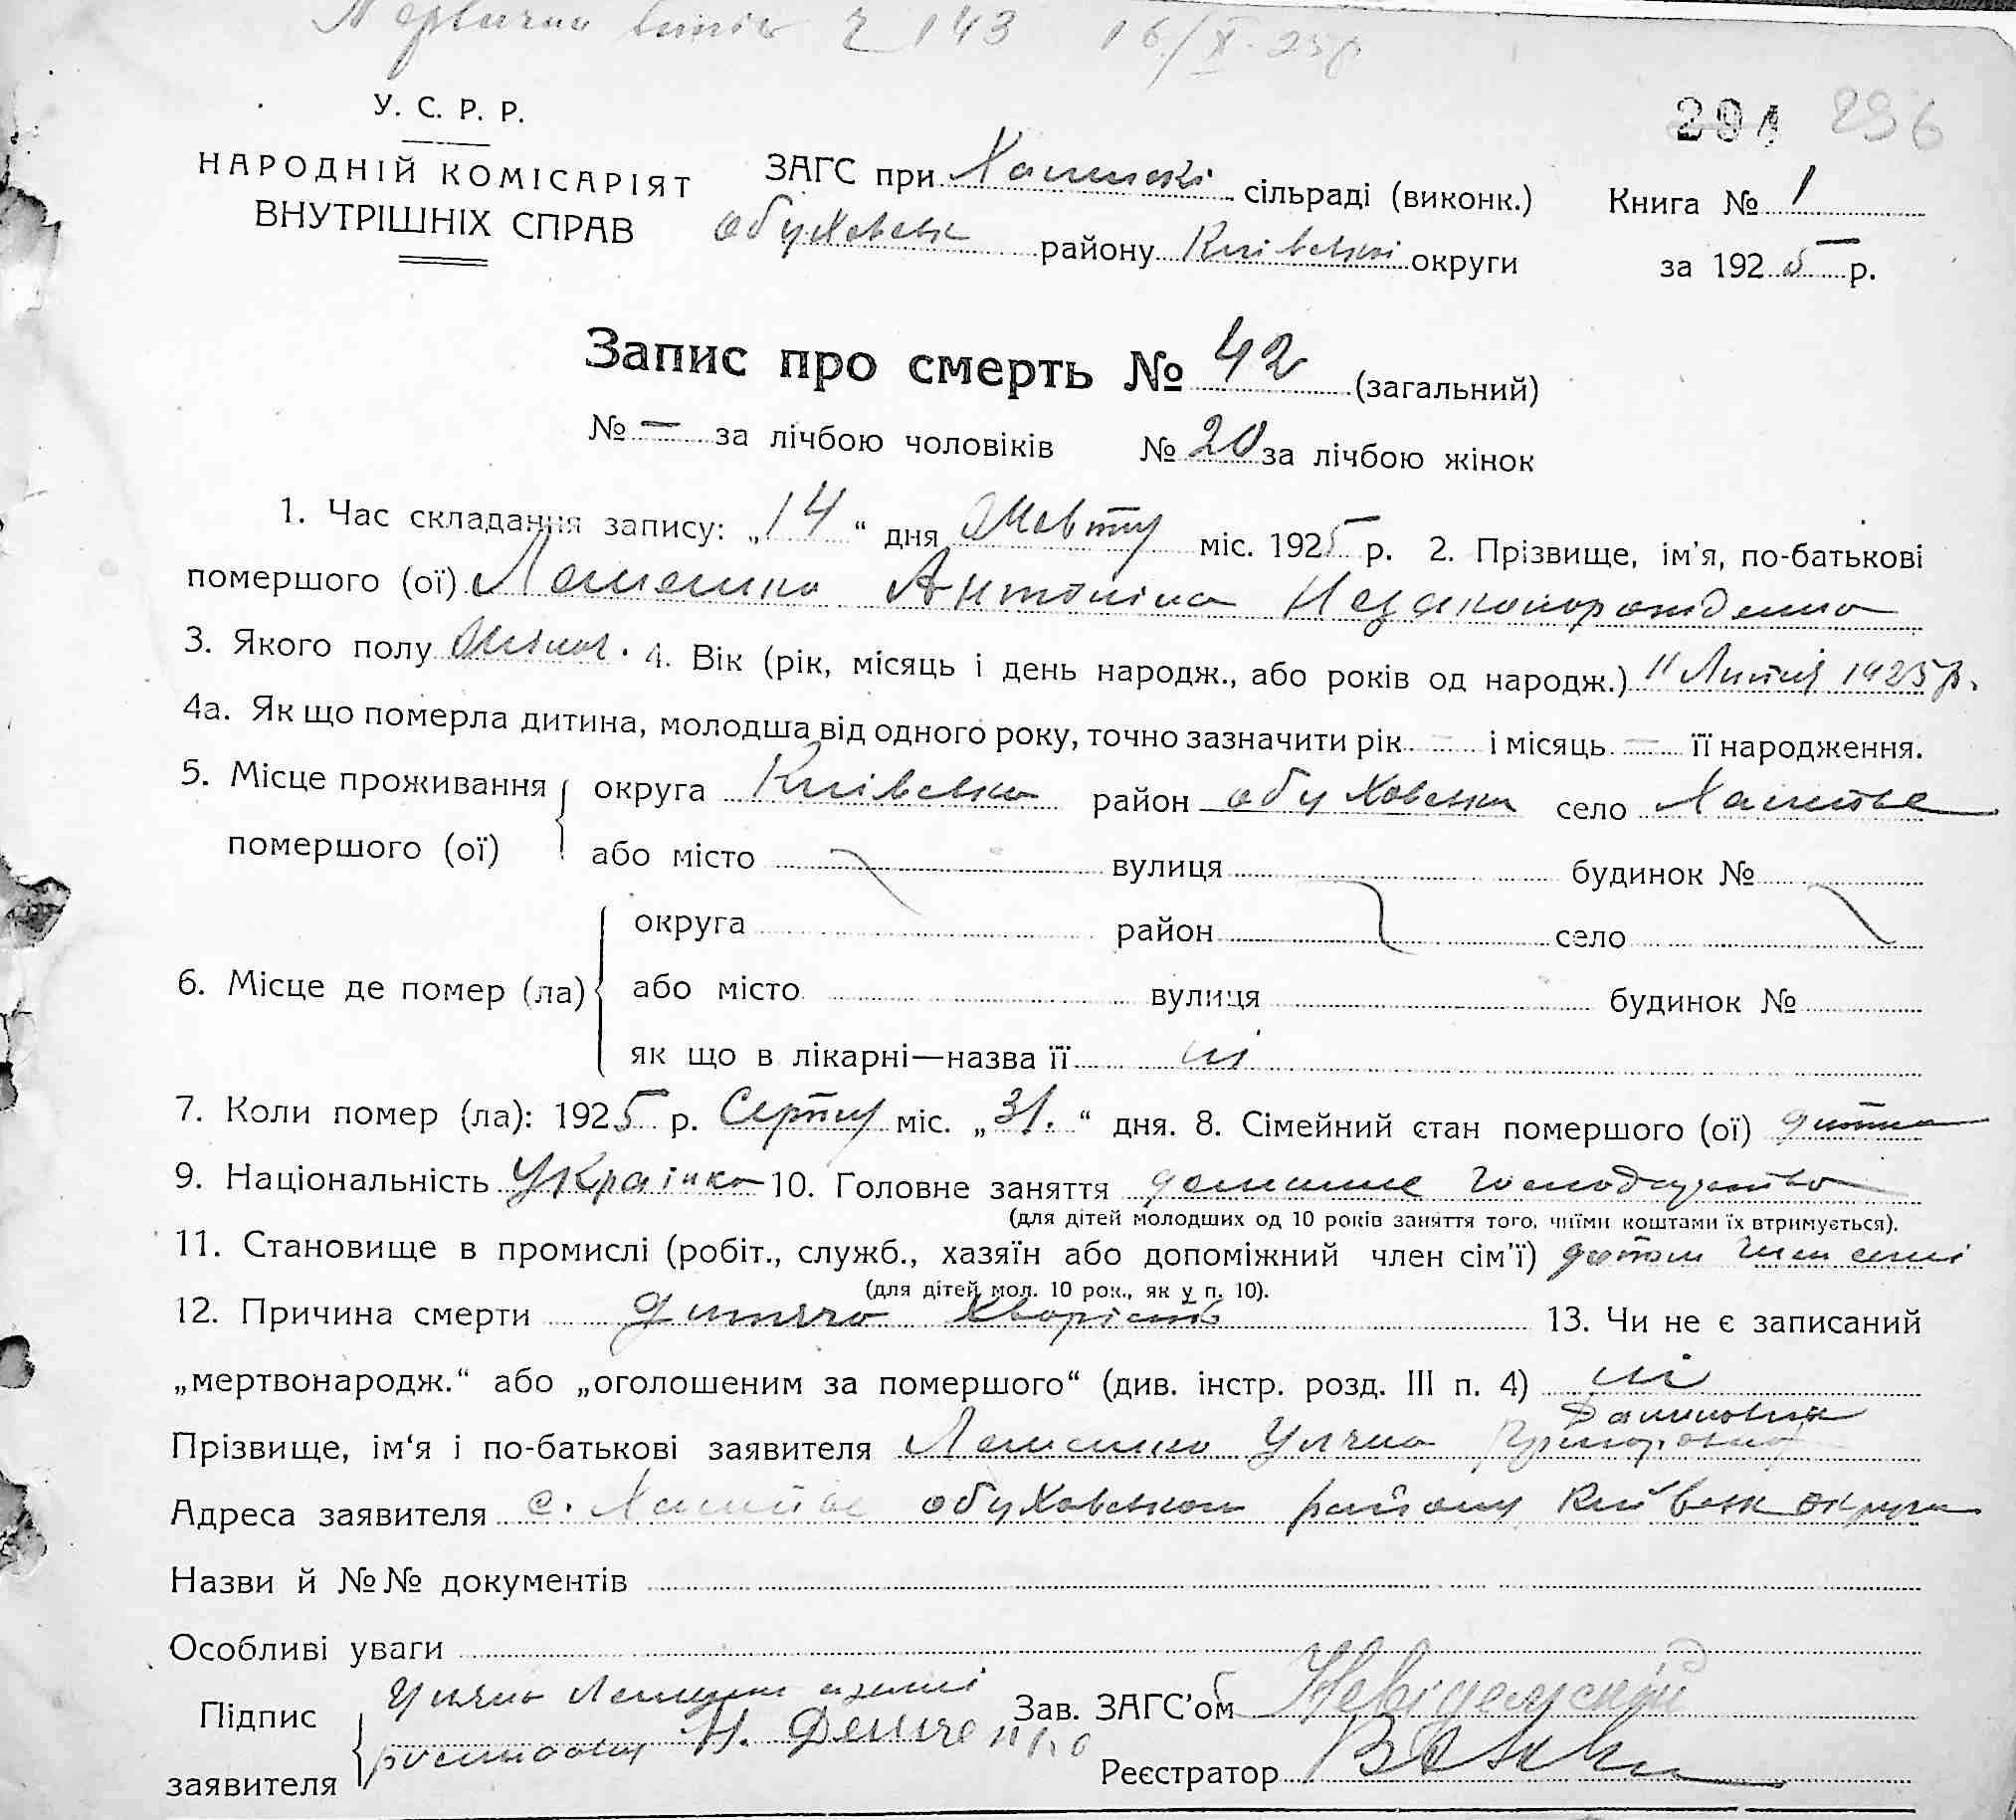 № 143 16/X 25 р
У. С. Р. Р. 294 296
НАРОДНІЙ КОМІСАРІЯТ ЗАГС при сільраді (виконк.) Книга № 1
ВНУТРІШНІХ СПРАВ Обуховськ району Київської округи за 1925 р.
Запис про смерть № 42 (загальний)
№ — за лічбою чоловіків № 20 за лічбою жінок
1. Час складання запису: „14“ дня Жовтну міс. 1925 р. 2. Прізвище, ім'я, по-батькові
помершого (ої) Антоніна Незаконорожденна
3. Якого полу 4. Вік (рік, місяць і день народж., або років од народж.) 11 1925 р.
4а. Як що померла дитина, молодша від одного року, точно зазначити рік — і місяць — її народження.
5. Місце проживання округа Київська район Обуховськ село
помершого (ої) або місто вулиця будинок №
округа район село
6. Місце де помер (ла) або місто вулиця будинок №
як що в лікарні—назва її ні
7. Коли помер (ла): 1925 р. Серпну міс. „31.“ дня. 8. Сімейний стан помершого (ої) дитина
9. Національність Українка 10. Головне заняття домашнє господарство
(для дітей молодших од 10 років заняття того, чиїми коштами їх втримується).
11. Становище в промислі (робіт., служб., хазяїн або допоміжний член сім'ї) член семї
(для дітей мол. 10 рок., як у п. 10).
12. Причина смерти дитяча хворість 13. Чи не є записаний
„мертвонародж.“ або „оголошеним за помершого“ (див. інстр. розд. III п. 4) ні
Прізвище, ім'я і по-батькові заявителя Уляна
Адреса заявителя с. Обуховськом району Київськ округи
Назви й №№ документів
Особливі уваги
Підпис Уляна Зав. ЗАГС'ом
заявителя Н. Реєстратор